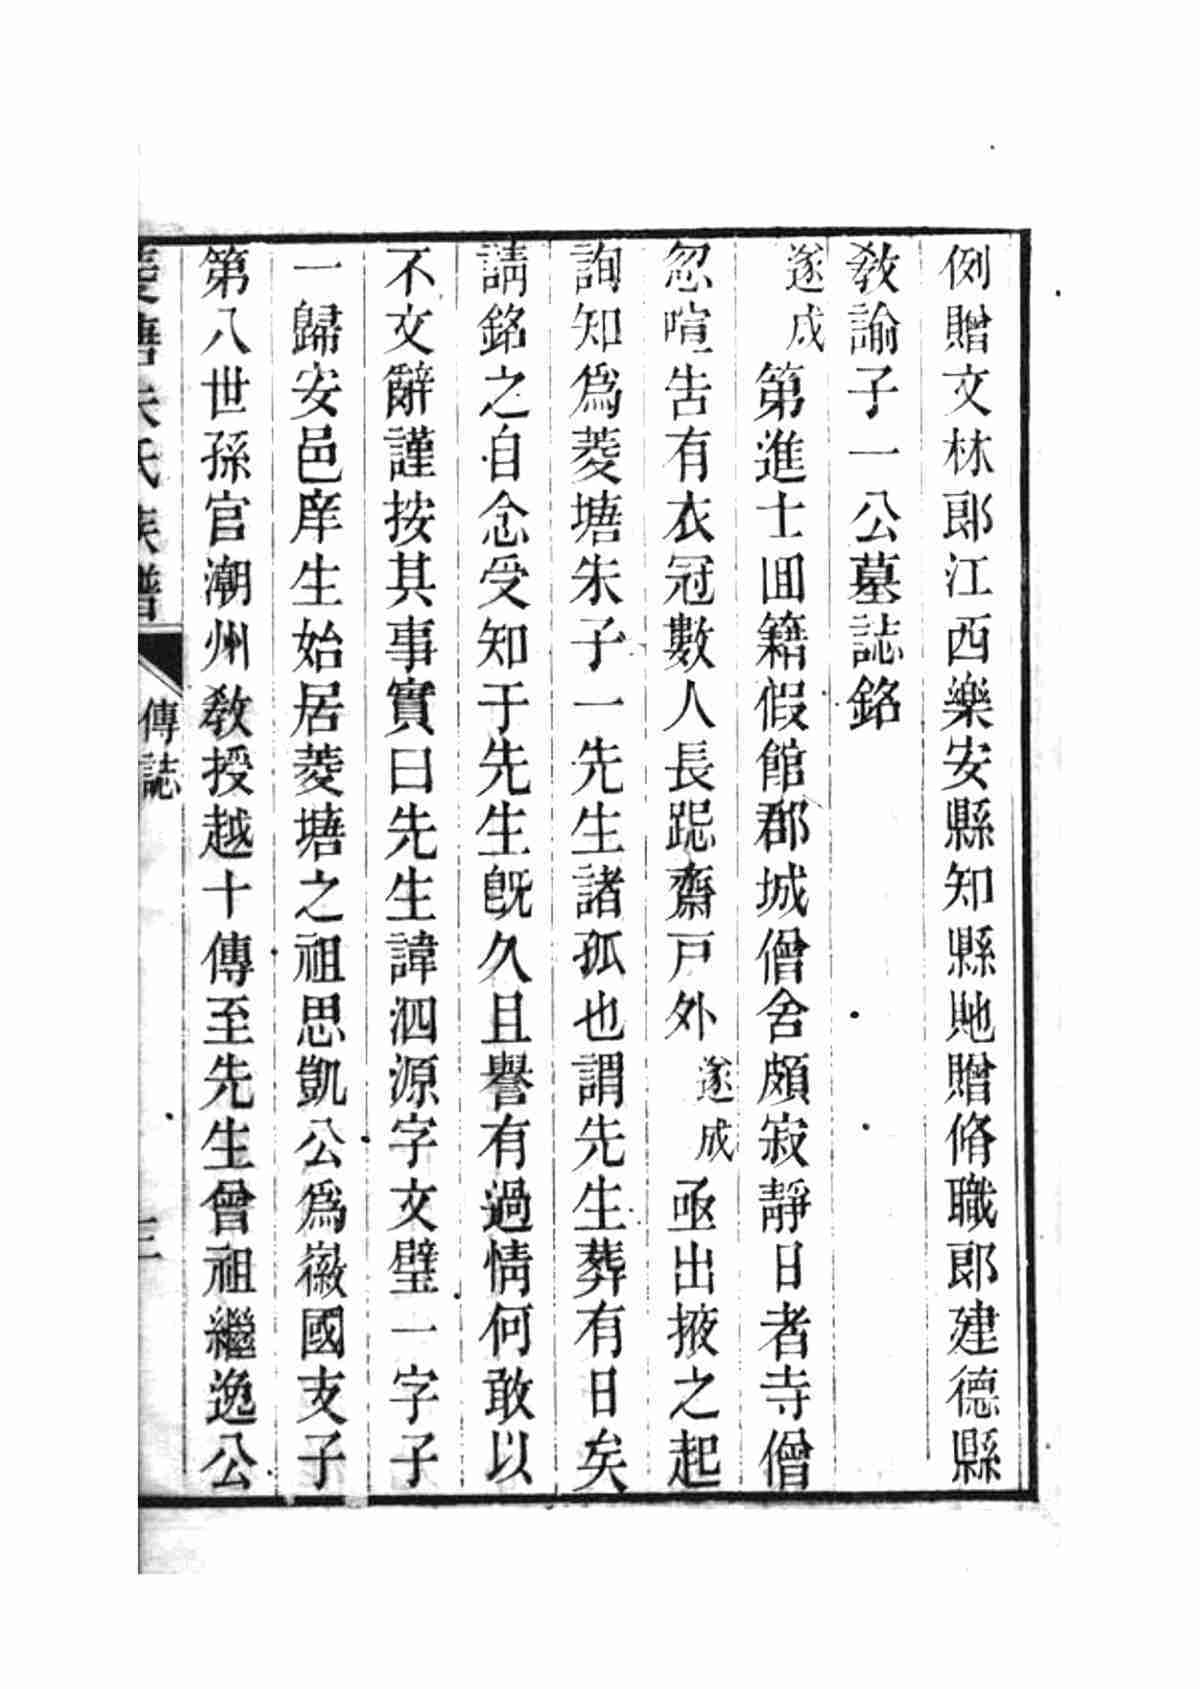 例贈文林郎江西樂安縣知縣貤贈脩職郎建德縣
教諭子一公墓誌銘
遂成第進士回籍假館郡城僧舍頗寂靜日者寺僧
忽喧告有衣冠數人長跽齋戸外遂成亟出掖之起
詢知爲菱塘朱子一先生諸孤也謂先生葬有日矣
請銘之自念受知于先生旣久且譽有過情何敢以
不文辭謹按其事實曰先生諱泗源字文璧一字子
一歸安邑庠生始居菱塘之祖思凱公爲徽國支子
第八世孫官潮州教授越十傳至先生曾祖繼逸公
菱塘朱氏族譜
傳誌
三